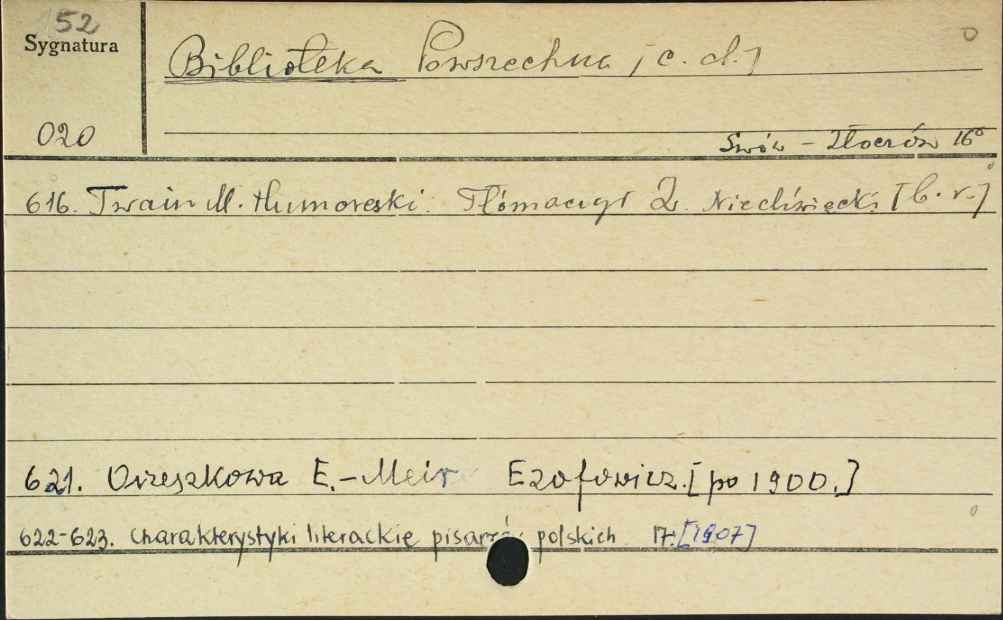 52
Sygnatura
Biblioteka Powszechna (c. d.)
020
Lwów - Złoczów 16°
616. Twain M. Humoreski. Tłómaczył Z. Niedźwiecki [b. r.]
621. Orzeszkowa E. - Meir Ezofowicz. [po 1900.]
622-623. Charakterystyki literackie pisarzów polskich 17. [1907]